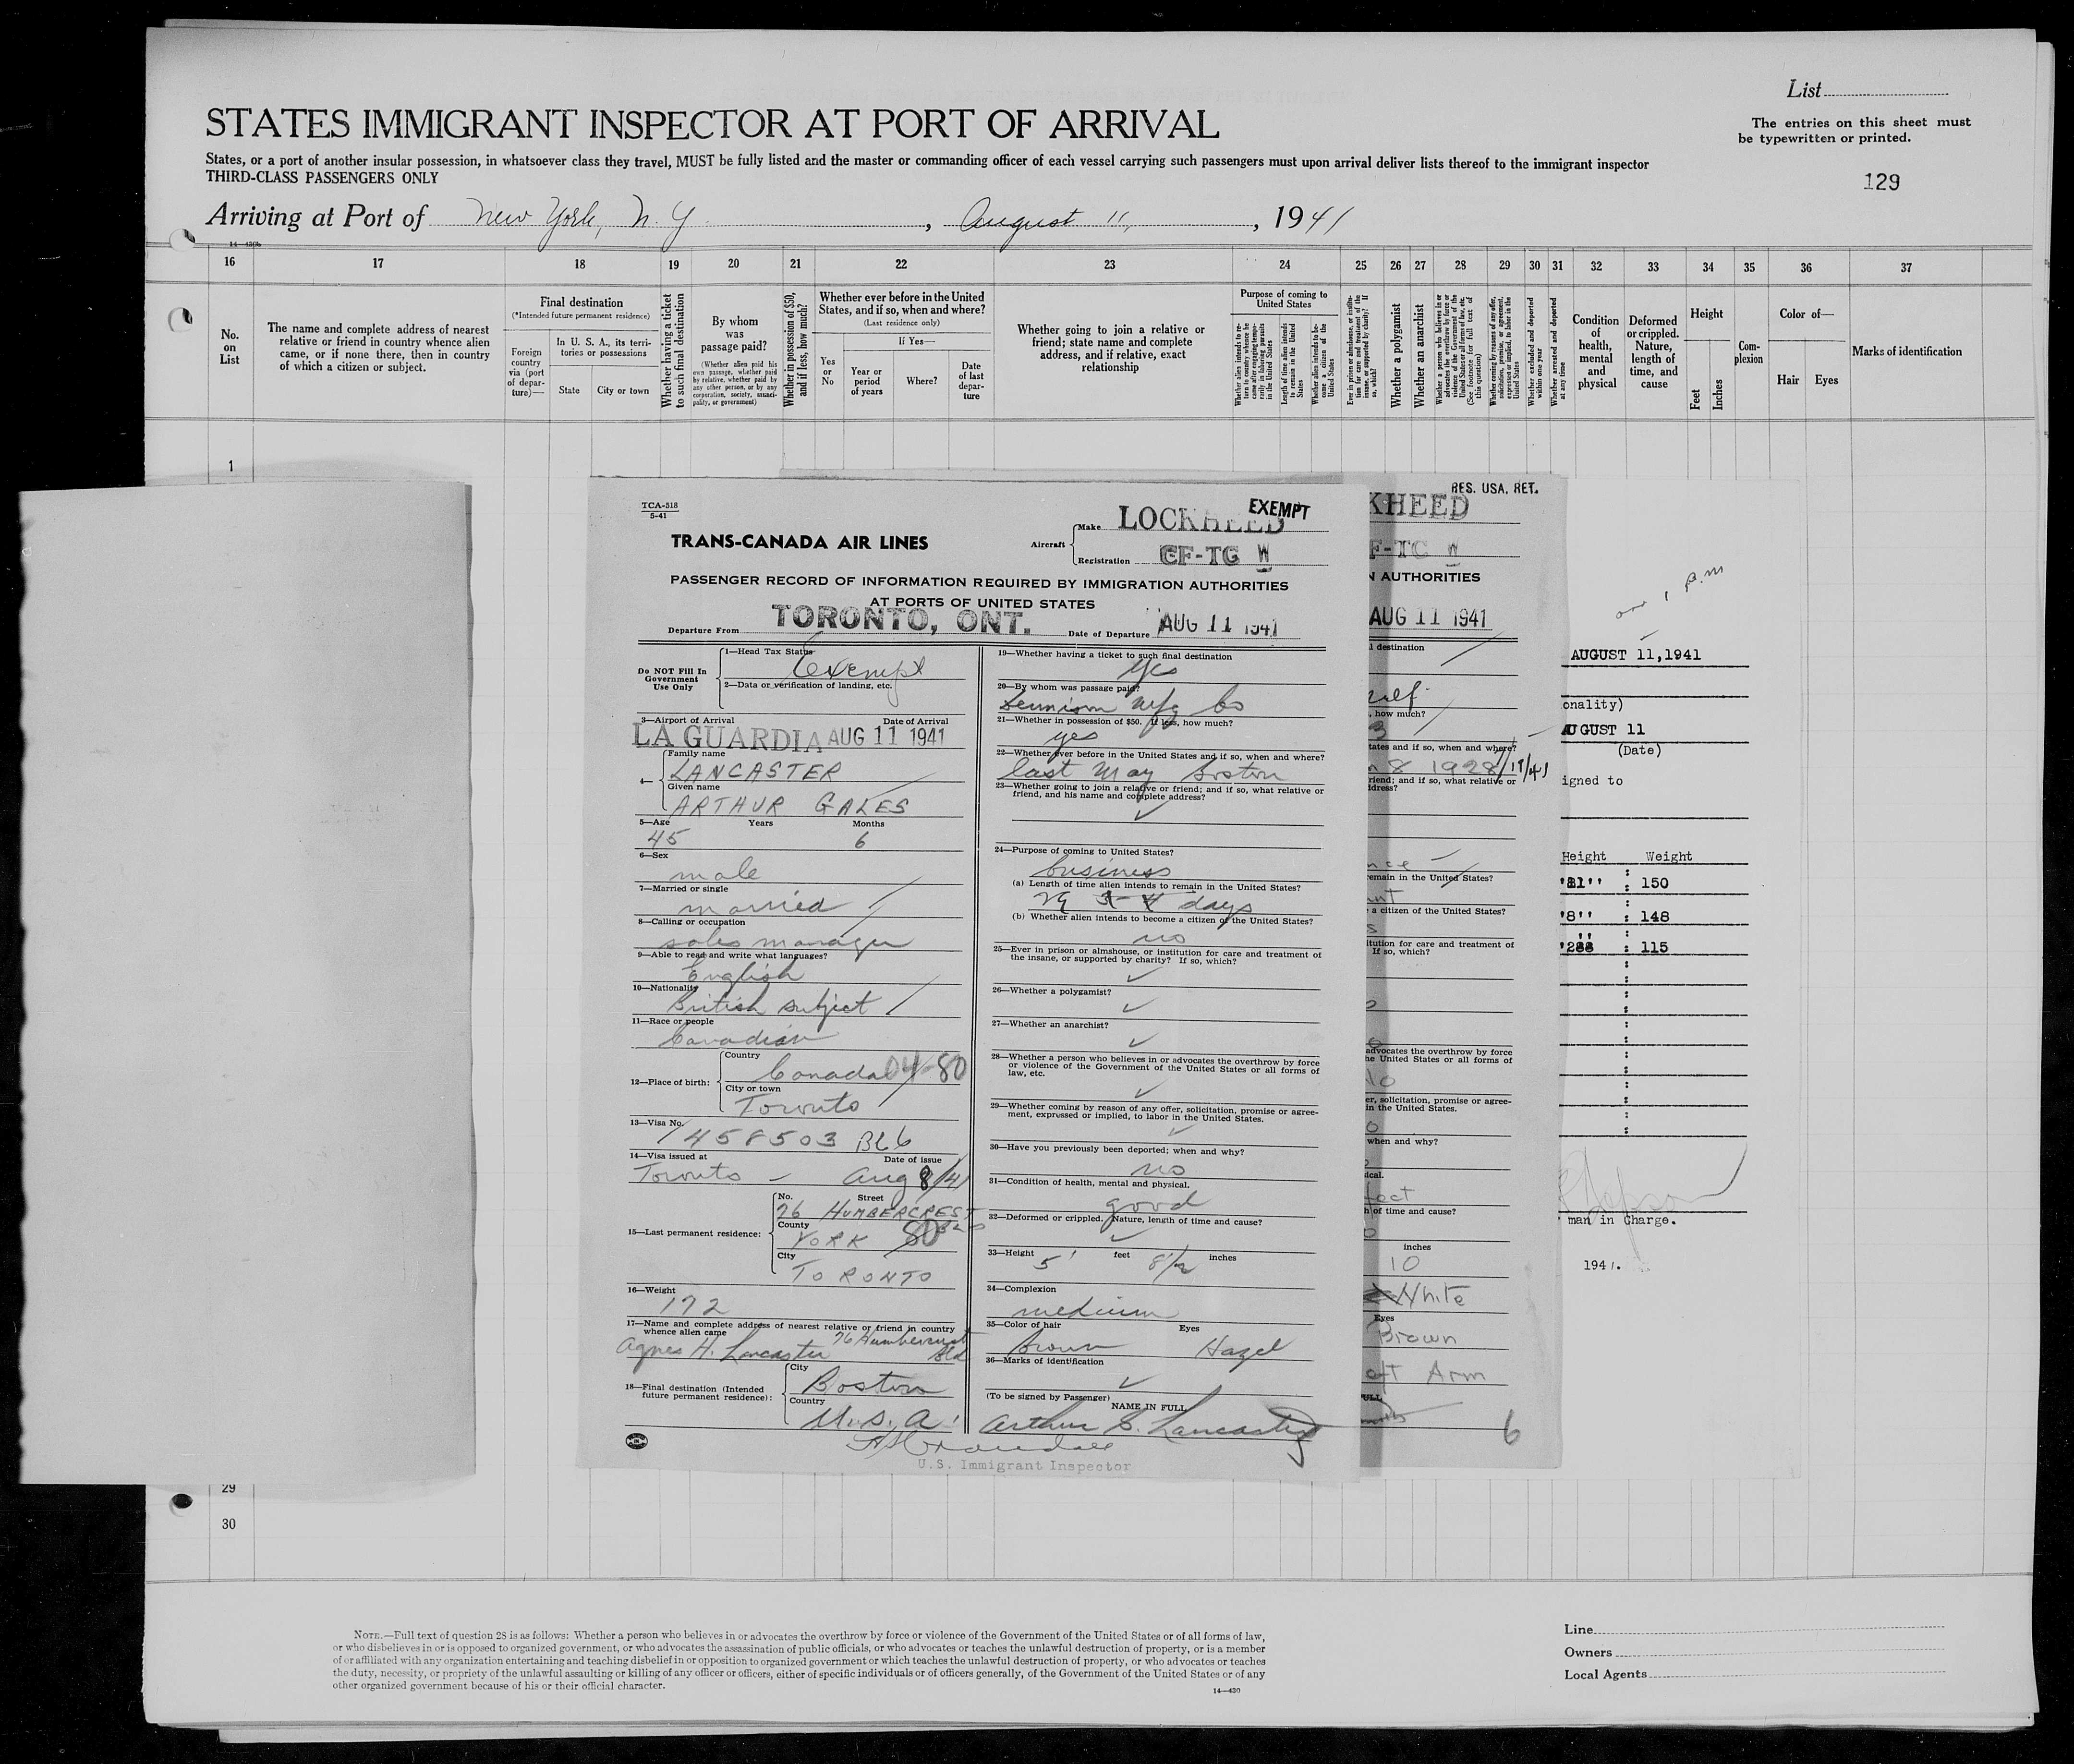 List
STATES IMMIGRANT INSPECTOR AT PORT OF ARRIVAL
The entries on this sheet must
be typewritten or printed.
States, or a port of another insular possession, in whatsoever class they travel, MUST be fully listed and the master or commanding officer of each vessel carrying such passengers must upon arrival deliver lists thereof to the immigrant inspector
THIRD-CLASS PASSENGERS ONLY
129
Arriving at Port of New York, N. Y. , August 11, , 1941
16 17 18 19 20 21 22 23 24 25 26 27 28 29 30 31 32 33 34 35 36 37
No.
on
List
The name and complete address of nearest
relative or friend in country whence alien
came, or if none there, then in country
of which a citizen or subject.
Final destination
(*Intended future permanent residence)
Foreign
country
via (port
of depar-
ture)—
In U. S. A., its terri-
tories or possessions
State City or town
Whether having a ticket
to such final destination
By whom
was
passage paid?
(Whether alien paid his
own passage, whether paid
by relative, whether paid by
any other person, or by any
corporation, society, munici-
pality, or government)
Whether in possession of $50,
and if less, how much?
Whether ever before in the United
States, and if so, when and where?
(Last residence only)
Yes
or
No
If Yes—
Year or
period
of years
Where?
Date
of last
depar-
ture
Whether going to join a relative or
friend; state name and complete
address, and if relative, exact
relationship
Purpose of coming to
United States
Length of time alien intends
to remain in the United
States
Whether alien intends to be-
come a citizen of the
United States
Whether a polygamist
Whether an anarchist
Whether excluded and deported
within one year
Whether arrested and deported
at any time
Condition
of
health,
mental
and
physical
Deformed
or crippled.
Nature,
length of
time, and
cause
Height
Feet
Inches
Com-
plexion
Color of—
Hair Eyes
Marks of identification
1
TCA-518
5-41
TRANS-CANADA AIR LINES
Aircraft
Make LOCKHEED
EXEMPT
Registration CF-TG W
PASSENGER RECORD OF INFORMATION REQUIRED BY IMMIGRATION AUTHORITIES
AT PORTS OF UNITED STATES
Departure From TORONTO, ONT. Date of Departure AUG 11 1941
Do NOT Fill In
Government
Use Only
1—Head Tax Status
Exempt
2—Data or verification of landing, etc.
3—Airport of Arrival Date of Arrival
LA GUARDIA AUG 11 1941
4—
Family name
LANCASTER
Given name
ARTHUR GALES
5—Age Years Months
45 6
6—Sex
male
7—Married or single
married
8—Calling or occupation
sales manager
9—Able to read and write what languages?
English
10—Nationality
British subject
11—Race or people
Canadian
12—Place of birth:
Country
Canada 04-80
City or town
Toronto
13—Visa No.
458503 BL6
14—Visa issued at Date of issue
Toronto - Aug 8/41
15—Last permanent residence:
No. Street
26 HUMBERCREST
County
YORK 80
City
TORONTO
16—Weight
172
17—Name and complete address of nearest relative or friend in country
whence alien came
Agnes H. Lancaster 26 Humbercrest
Bld
18—Final destination (Intended
future permanent residence):
City
Boston
Country
U.S.A.
19—Whether having a ticket to such final destination
yes
20—By whom was passage paid?
Mfg Co
21—Whether in possession of $50. If less, how much?
yes
22—Whether ever before in the United States and if so, when and where?
last May Boston
23—Whether going to join a relative or friend; and if so, what relative or
friend, and his name and complete address?
24—Purpose of coming to United States?
business
(a) Length of time alien intends to remain in the United States?
days
(b) Whether alien intends to become a citizen of the United States?
no
25—Ever in prison or almshouse, or institution for care and treatment of
the insane, or supported by charity? If so, which?
26—Whether a polygamist?
27—Whether an anarchist?
28—Whether a person who believes in or advocates the overthrow by force
or violence of the Government of the United States or all forms of
law, etc.
29—Whether coming by reason of any offer, solicitation, promise or agree-
ment, expressed or implied, to labor in the United States.
30—Have you previously been deported; when and why?
no
31—Condition of health, mental and physical.
good
32—Deformed or crippled. Nature, length of time and cause?
33—Height feet inches
5' 8 1/2
34—Complexion
medium
35—Color of hair Eyes
Brown Hazel
36—Marks of identification
(To be signed by Passenger)
NAME IN FULL
Arthur G. Lancaster
U.S. Immigrant Inspector
RES. USA. RET.
KHEED
F-TG W
N AUTHORITIES
AUG 11 1941
l destination
self
, how much?
tates and if so, when and where?
8 1928
riend; and if so, what relative or
dress?
emain in the United States?
a citizen of the United States?
itution for care and treatment of
If so, which?
advocates the overthrow by force
he United States or all forms of
er, solicitation, promise or agree-
in the United States.
when and why?
ical.
h of time and cause?
inches
10
White
Eyes
Brown
Arm
FULL
6
P.M
AUGUST 11,1941
onality)
AUGUST 11
(Date)
igned to
Height Weight
: 150
'8'' : 148
: 115
man in Charge.
1941.
29
30
NOTE.—Full text of question 28 is as follows: Whether a person who believes in or advocates the overthrow by force or violence of the Government of the United States or of all forms of law,
or who disbelieves in or is opposed to organized government, or who advocates the assassination of public officials, or who advocates or teaches the unlawful destruction of property, or is a member
of or affiliated with any organization entertaining and teaching disbelief in or opposition to organized government or which teaches the unlawful destruction of property, or who advocates or teaches
the duty, necessity, or propriety of the unlawful assaulting or killing of any officer or officers, either of specific individuals or of officers generally, of the Government of the United States or of any
other organized government because of his or their official character.
14—430
Line
Owners
Local Agents